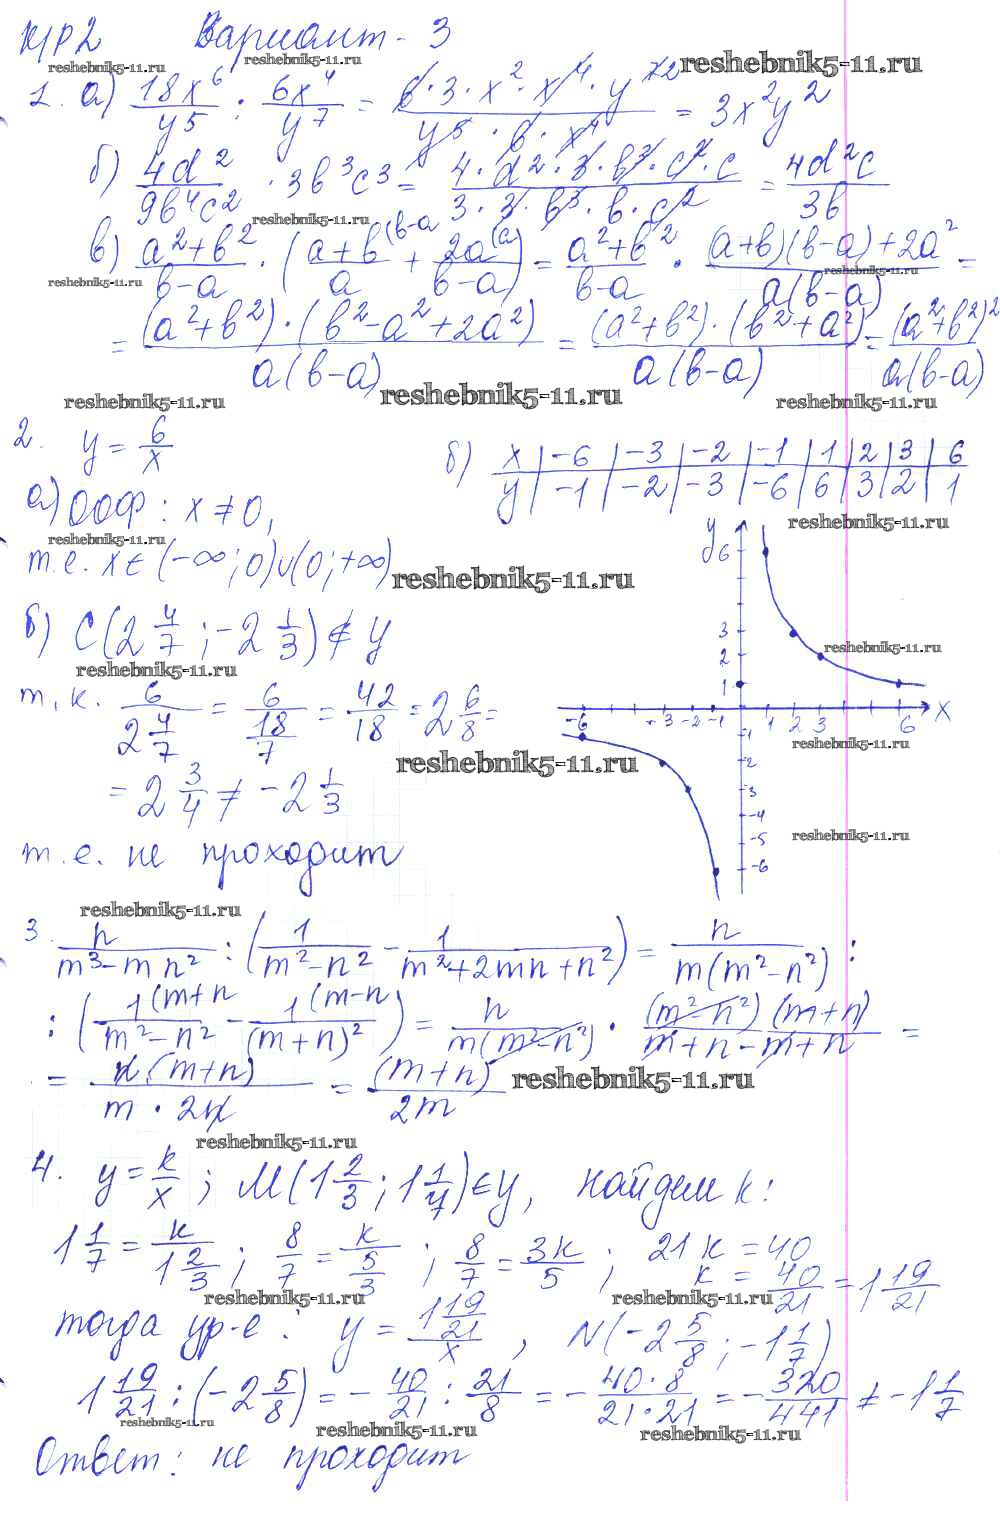 К/Р2 Вариант - 3
reshebnik5-11.ru reshebnik5-11.ru reshebnik5-11.ru
1. а) 18x^6/y^5 : 6x^4/y^7 = 6·3·x^2·x^4·y^7 2/y^5·6·x^4 = 3x^2y^2
б) 4d^2/9b^4c^2 · 3b^3c^3 = 4·d^2·3·b^3·c^2·c/3·3·b^3·b·c^2 = 4d^2c/3b
reshebnik5-11.ru
в) a^2+b^2/b-a · (a+b/a (b-a + 2a/b-a (a) = a^2+b^2/b-a · (a+b)(b-a)+2a^2/a(b-a) =
reshebnik5-11.ru reshebnik5-11.ru
= (a^2+b^2)·(b^2-a^2+2a^2)/a(b-a) = (a^2+b^2)·(b^2+a^2)/a(b-a) = (a^2+b^2)^2/a(b-a)
reshebnik5-11.ru reshebnik5-11.ru reshebnik5-11.ru
2. y = 6/x
б) x | -6 | -3 | -2 | -1 | 1 | 2 | 3 | 6
y | -1 | -2 | -3 | -6 | 6 | 3 | 2 | 1
а) ООФ: x ≠ 0,
reshebnik5-11.ru reshebnik5-11.ru
т.е. x ∈ (-∞; 0)∪(0; +∞)
reshebnik5-11.ru
б) C(2 4/7; -2 1/3) ∉ y
reshebnik5-11.ru
т.к. 6/2 4/7 = 6/18/7 = 42/18 = 2 6/8 =
= 2 3/4 ≠ -2 1/3
т.е. не проходит
y
6
3
2
1
reshebnik5-11.ru
-6 -3 -2 -1 1 2 3 6 x
-1
reshebnik5-11.ru
-2
reshebnik5-11.ru
-3
-4
-5
reshebnik5-11.ru
-6
reshebnik5-11.ru
3. n/m^3-mn^2 : (1/m^2-n^2 - 1/m^2+2mn+n^2) = n/m(m^2-n^2) :
: (1/m^2-n^2 (m+n - 1/(m+n)^2 (m-n) = n/m(m^2-n^2) · (m^2-n^2)(m+n)/m+n-m+n =
= n(m+n)/m·2n = (m+n)/2m
reshebnik5-11.ru
reshebnik5-11.ru
4. y = k/x; M(1 2/3; 1 1/7) ∈ y, найдем k:
1 1/7 = k/1 2/3; 8/7 = k/5/3; 8/7 = 3k/5; 21k = 40
k = 40/21 = 1 19/21
reshebnik5-11.ru reshebnik5-11.ru
тогда ур-е: y = 1 19/21/x, N(-2 5/8; -1 1/7)
1 19/21 : (-2 5/8) = -40/21 : 21/8 = -40·8/21·21 = -320/441 ≠ -1 1/7
reshebnik5-11.ru reshebnik5-11.ru reshebnik5-11.ru
Ответ: не проходит